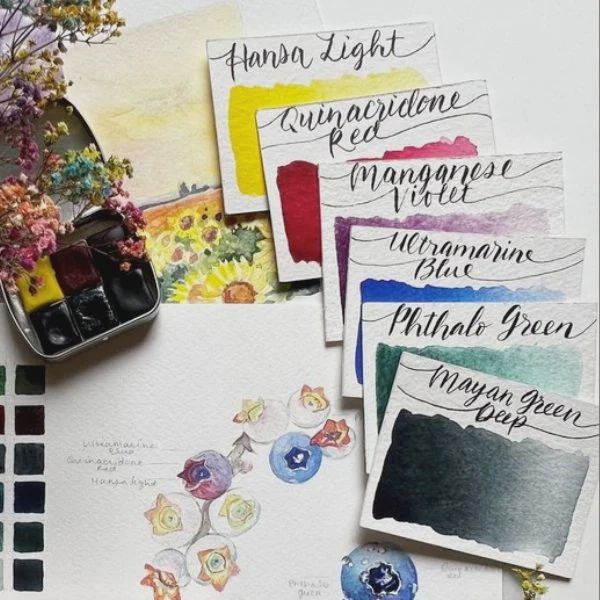 Hansa Light
Quinacridone
Red
Manganese
Violet
Ultramarine
Blue
Phthalo Green
Mayan Green
Deep
Ultramarine
Blue
Quinacridone
Red
Hansa light
Phthalo
green